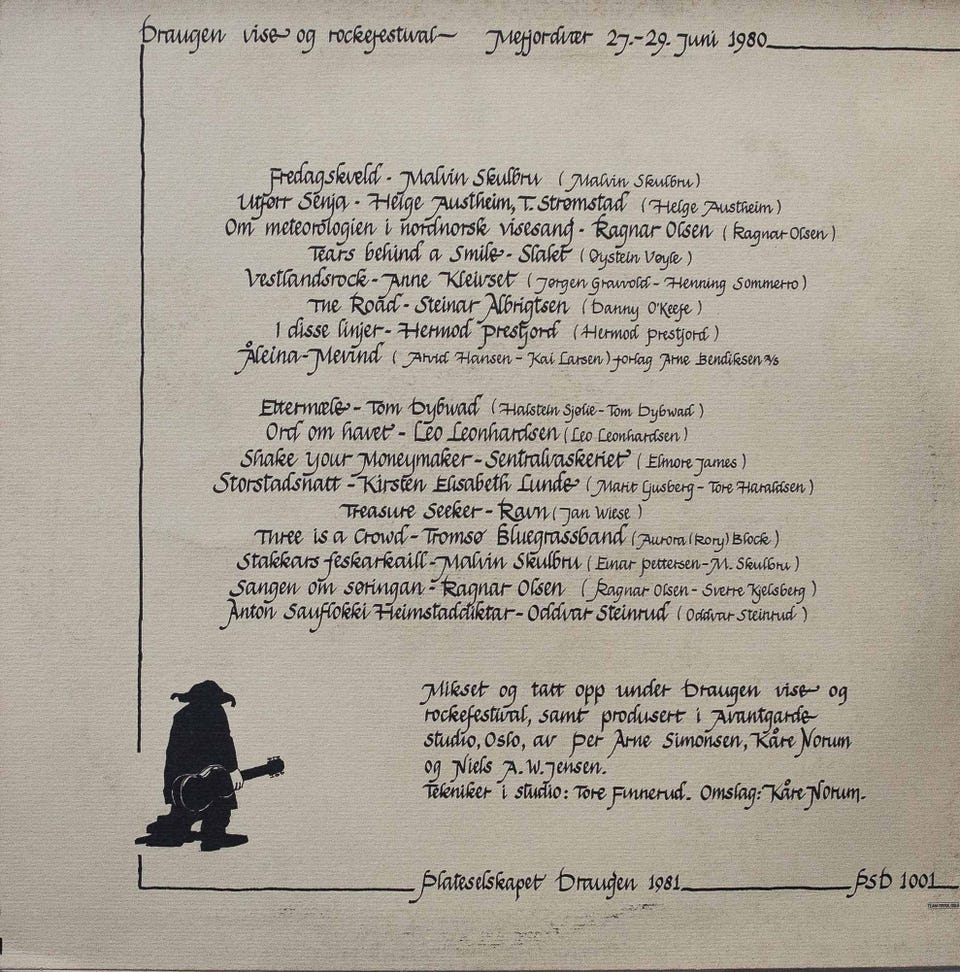 Draugen vise og rockefestival - Mefjordvær 27.-29. Juni 1980
Fredagskveld - Malvin Skulbru (Malvin Skulbru)
Utførr Senja - Helge Austheim, T. Strømstad (Helge Austheim)
Om meteorologien i nordnorsk visesang - Ragnar Olsen (Ragnar Olsen)
Tears behind a Smile - Slakt (Øystein Vøyle)
Vestlandsrock - Anne Kleivset (Jørgen Gravvold - Henning Sommerro)
The Road - Steinar Albrigtsen (Danny O'Keefe)
I disse linjer - Hermod Prestjord (Hermod Prestjord)
Åleina - Mevind (Arvid Hansen - Kai Larsen) forlag Arne Bendiksen A/S
Ettermæle - Tom Dybwad (Halstein Sjølie - Tom Dybwad)
Ord om havet - Leo Leonhardsen (Leo Leonhardsen)
Shake Your Moneymaker - Sentralvaskeriet (Elmore James)
Storstadsnatt - Kirsten Elisabeth Lunde (Marit Gusberg - Tore Haraldsen)
Treasure Seeker - Ravn (Jan Wiese)
Three is a Crowd - Tromsø Bluegrassband (Aurora (Rory) Block)
Stakkars feskarkaill - Malvin Skulbru (Einar Pettersen - M. Skulbru)
Sangen om søringan - Ragnar Olsen (Ragnar Olsen - Sverre Kjelsberg)
Anton Sauflokki Heimstaddiktar - Oddvar Steinrud (Oddvar Steinrud)
Mikset og tatt opp under Draugen vise og
rockefestival, samt produsert i Avantgarde
studio, Oslo, av Per Arne Simonsen, Kåre Norum
og Niels A.W. Jensen.
Tekniker i studio: Tore Finnerud. Omslag: Kåre Norum.
Plateselskapet Draugen 1981
PSD 1001